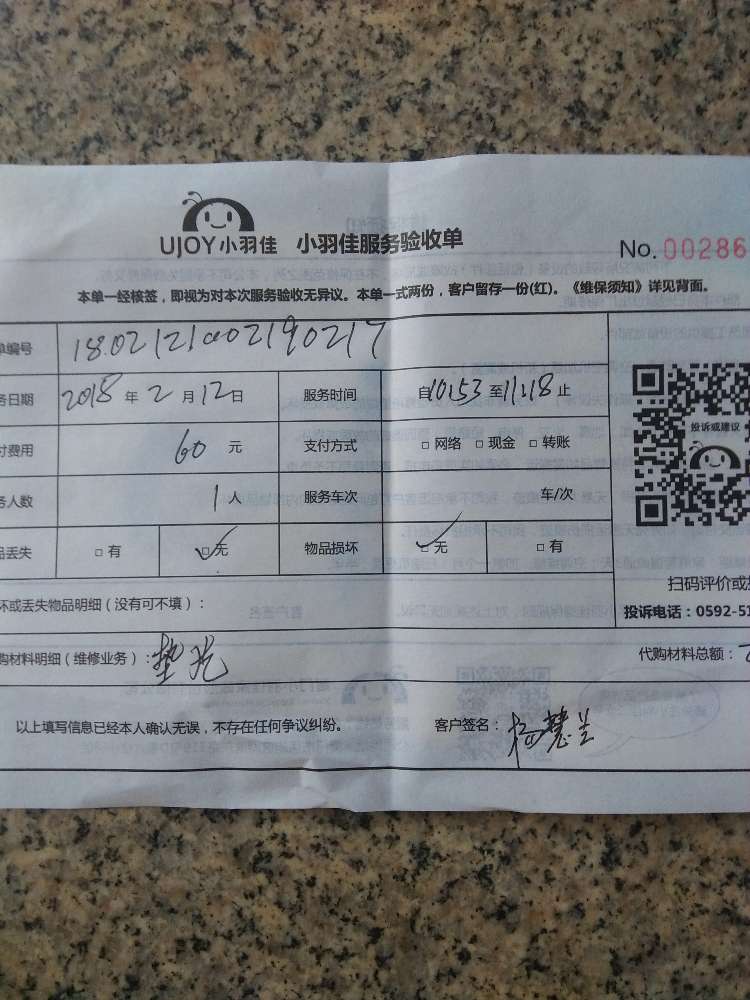 UJOY小羽佳 小羽佳服务验收单
No. 00286
本单一经核签，即视为对本次服务验收无异议。本单一式两份，客户留存一份(红)。《维保须知》详见背面。
单编号 1802121002190217
务日期 2018 年 2 月 12 日 服务时间 自10:53 至11:18 止
付费用 60 元 支付方式 □ 网络 □ 现金 □ 转账
投诉或建议
务人数 1 人 服务车次 车/次
品丢失 □ 有 ☑ 无 物品损坏 ☑ 无 □ 有
扫码评价或
坏或丢失物品明细（没有可不填）：
投诉电话：0592-51
购材料明细（维修业务）：垫
代购材料总额：
以上填写信息已经本人确认无误，不存在任何争议纠纷。 客户签名：杨慧兰